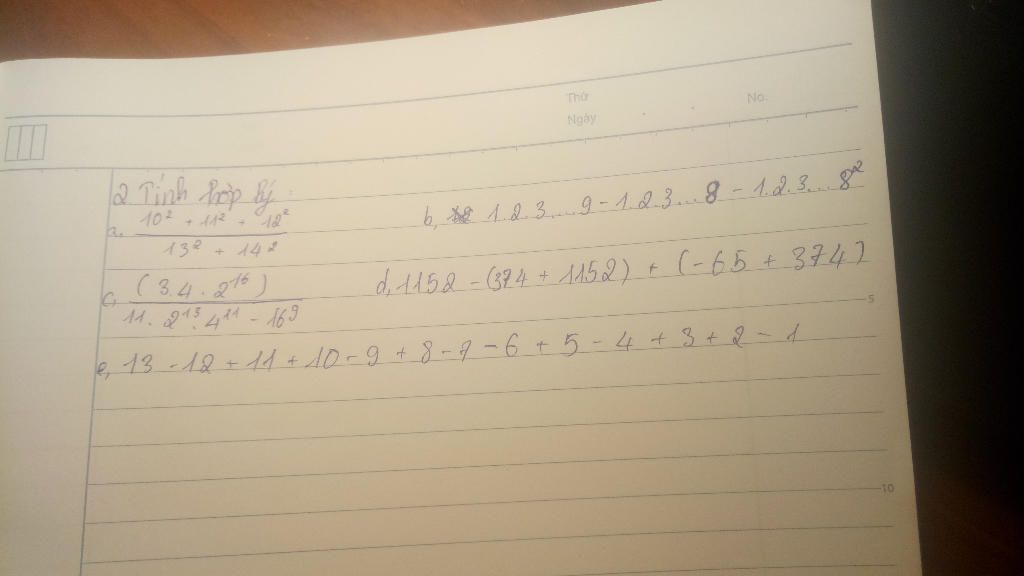 Thứ No.
Ngày
2 Tính hợp lý :
a. (10² + 11² + 12²) / (13² + 14²) b, 1.2.3....9 - 1.2.3...8 - 1.2.3...8²
c, (3.4.2¹⁶) / (11.2¹³.4¹¹ - 16⁹) d, 1152 - (374 + 1152) + (-65 + 374)
5
e, 13 - 12 + 11 + 10 - 9 + 8 - 7 - 6 + 5 - 4 + 3 + 2 - 1
10